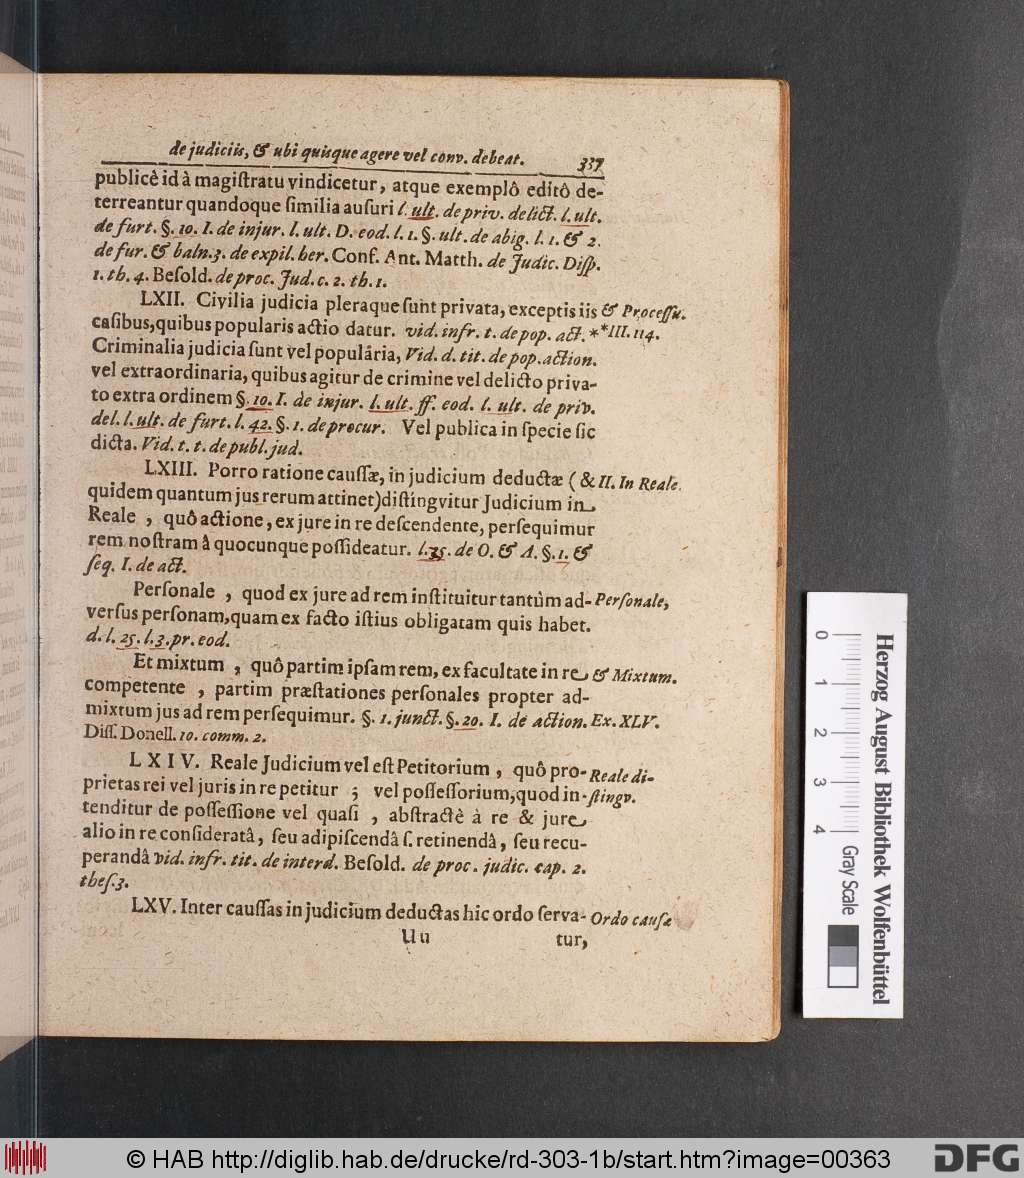 de judiciis, & ubi quisque agere vel conv. debeat. 337
publicê id à magiſtratu vindicetur, atque exemplô editô de-
terreantur quandoque ſimilia auſuri l. ult. de priv. delict. l. ult.
de furt. §. 10. I. de injur. l. ult. D. eod. l. 1. §. ult. de abig. l. 1. & 2.
de fur. & baln. 3. de expil. her. Conf. Ant. Matth. de Judic. Diſp.
1. th. 4. Beſold. de proc. Jud. c. 2. th. 1.
LXII. Civilia judicia pleraque ſunt privata, exceptis iis & Proceſſu.
caſibus, quibus popularis actio datur. vid. infr. t. de pop. act. **III. 114.
Criminalia judicia ſunt vel populâria, Vid. d. tit. de pop. action.
vel extraordinaria, quibus agitur de crimine vel delicto priva-
to extra ordinem §. 10. I. de injur. l. ult. ff. eod. l. ult. de priv.
del. l. ult. de furt. l. 42. §. 1. de procur. Vel publica in ſpecie ſic
dicta. Vid. t. t. de publ. jud.
LXIII. Porro ratione cauſſæ, in judicium deductæ ( & II. In Reale.
quidem quantum jus rerum attinet) diſtingvitur Judicium in
Reale, quô actione, ex jure in re deſcendente, perſequimur
rem noſtram â quocunque poſſideatur. l. 25. de O. & A. §. 1. &
ſeq. I. de act.
Perſonale, quod ex jure ad rem inſtituitur tantùm ad- Perſonale,
verſus perſonam, quam ex facto iſtius obligatam quis habet.
d. l. 25. l. 3. pr. eod.
Et mixtum, quô partim ipſam rem, ex facultate in re & Mixtum.
competente, partim præſtationes perſonales propter ad-
mixtum jus ad rem perſequimur. §. 1. junct. §. 20. I. de action. Ex. XLV.
Diſſ. Donell. 10. comm. 2.
LXIV. Reale Judicium vel eſt Petitorium, quô pro- Reale di-
prietas rei vel juris in re petitur; vel poſſeſſorium, quod in- ſtingv.
tenditur de poſſeſſione vel quaſi, abſtractè à re & jure
alio in re conſideratâ, ſeu adipiſcendâ ſ. retinendâ, ſeu recu-
perandâ vid. infr. tit. de interd. Beſold. de proc. judic. cap. 2.
theſ. 3.
LXV. Inter cauſſas in judicium deductas hic ordo ſerva- Ordo cauſæ
Uu tur,
0 1 2 3 4
Gray Scale
Herzog August Bibliothek Wolfenbüttel
© HAB http://diglib.hab.de/drucke/rd-303-1b/start.htm?image=00363
DFG